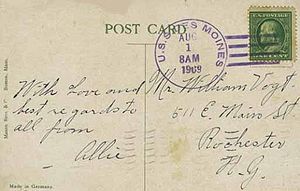 POST CARD
U.S.S. DES MOINES
AUG
1
8AM
1909
U.S. POSTAGE
ONE CENT
With Love and
best regards to
all from
Allie
Mr. William Vogt.
511 E. Main St.
Rochester
N.Y.
Mason Bros. & Co. Boston, Mass.
Made in Germany.